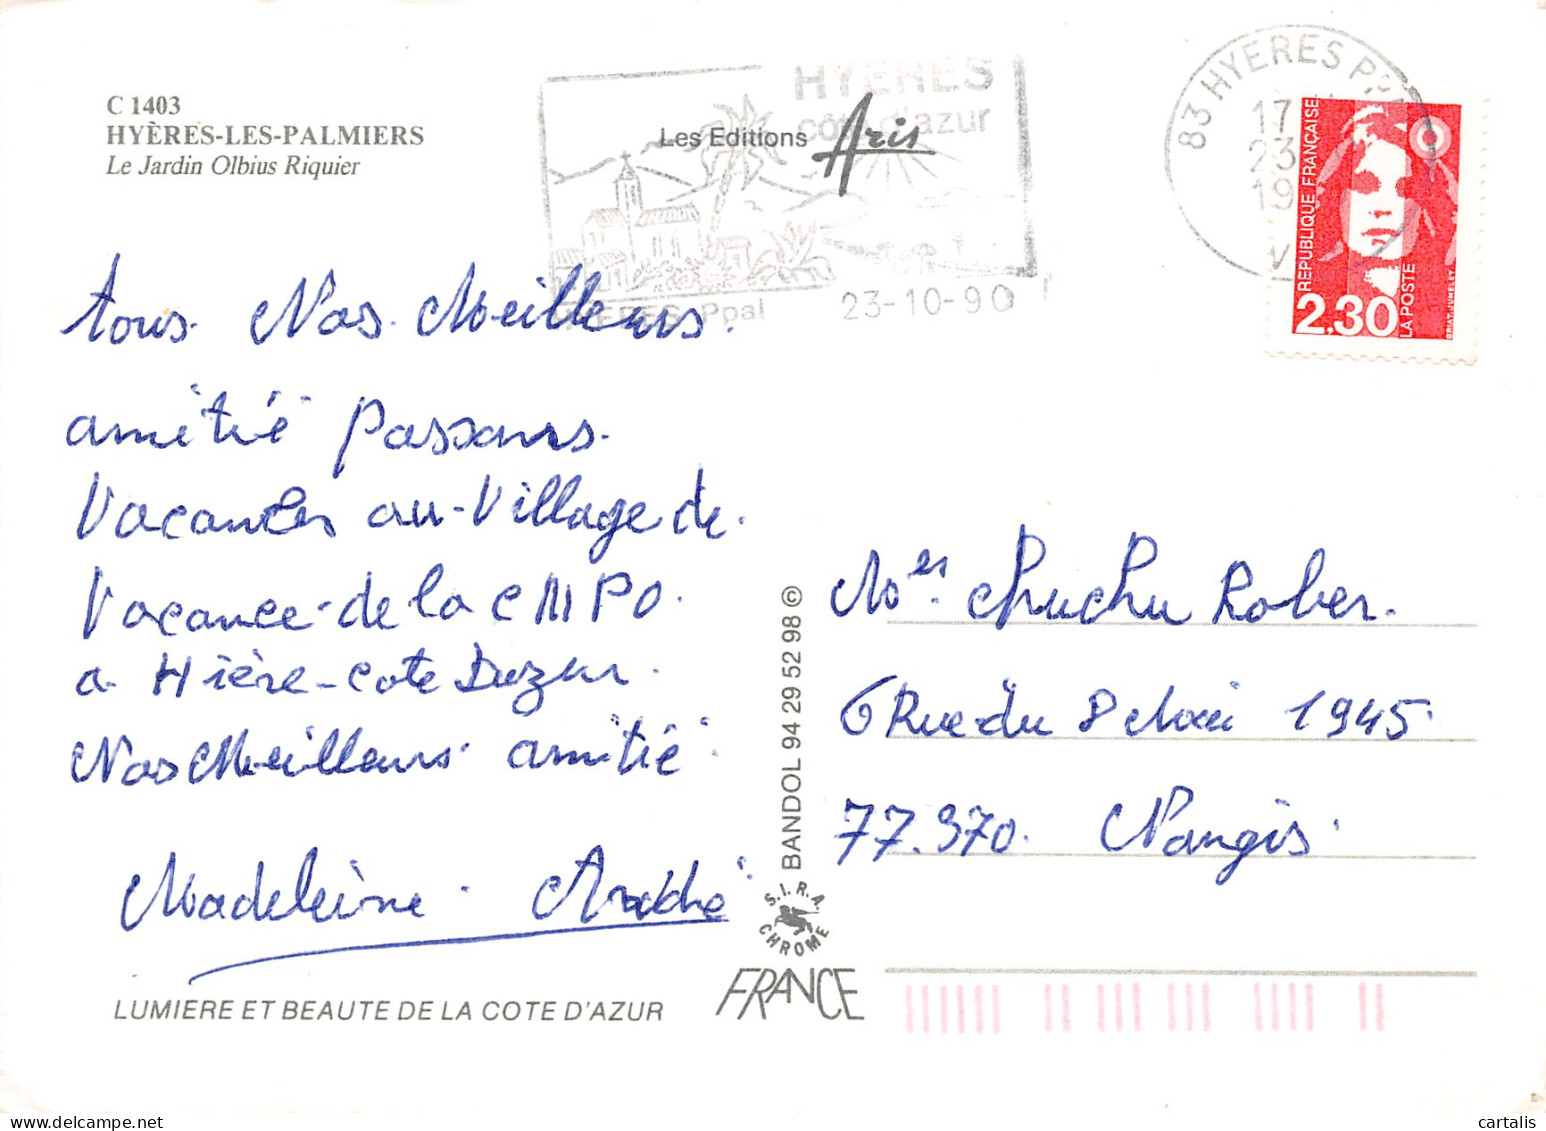 C 1403
HYÈRES-LES-PALMIERS
Le Jardin Olbius Riquier
Les Editions Aris
HYERES
côte d'azur
HYERES Ppal 23-10-90
83 HYERES PPAL
17
23
19
REPUBLIQUE FRANÇAISE
2,30
LA POSTE
tous. Nos. Meilleurs.
amitié passons.
Vacances au-Village de.
Vacance-de la CMPO.
a Hière-cote Duzur.
Nos Meilleurs amitié
Madeleine. André
Mers. Chuchu Rober.
6 Rue du 8 Mai 1945.
77.370. Nangis.
BANDOL 94 29 52 98 ©
S.I.R.A.
CHROME
FRANCE
LUMIERE ET BEAUTE DE LA COTE D'AZUR
cartalis